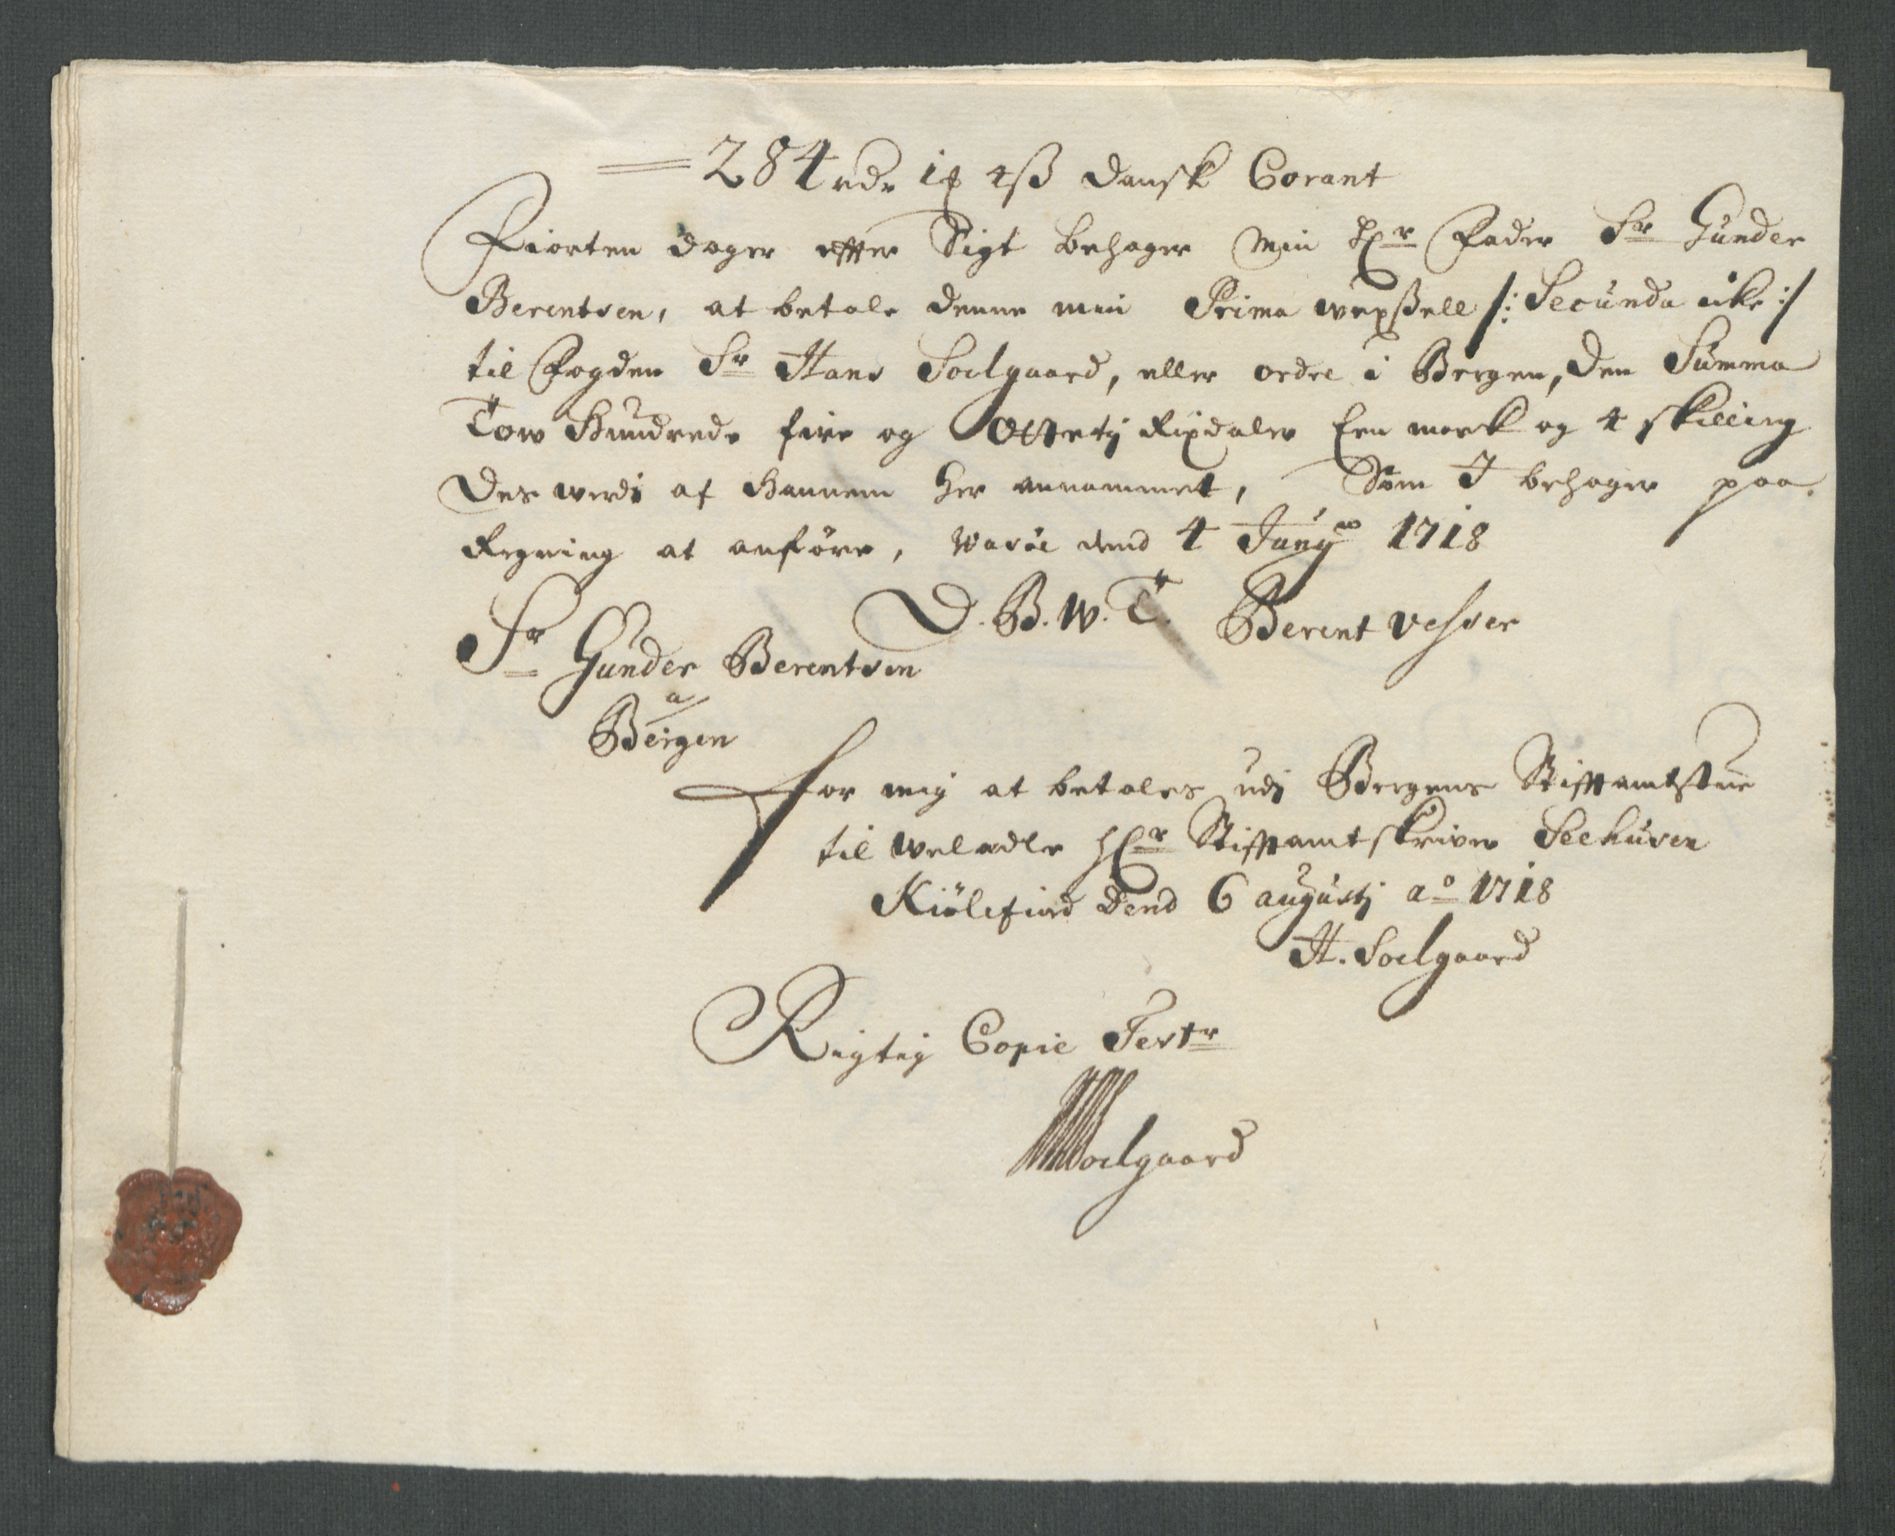 284 rdr 1 ꝭ 4 ß dansk Corant
Fiorten dager effter Sigt behager Min Hr Fader Sr Gunder
Berentsen, at betale denne min Prima wexßell /: Secunda icke :/
til Fogden Sr Hans Soelgaard, eller ordre i Bergen, den Summa
Tow Hundrede fire og Ottety Rixdaler Een mark og 4 skilling
des werdi af Hannem her annammet, Som I behager paa
Regning at anføre, Wasöe dend 4 Junÿ 1718
D. B. W. T. Berent vesser
Sr Gunder Berentsen
a
Bergen
for mig at betales udj Bergens Stifftamtstue
til weladle Hr Stifftamtskriver Seehusen
Kiölefiord dend 6 augustj ao 1718
H. Soelgaard
Rigtig Copie Tester
HSoelgaard